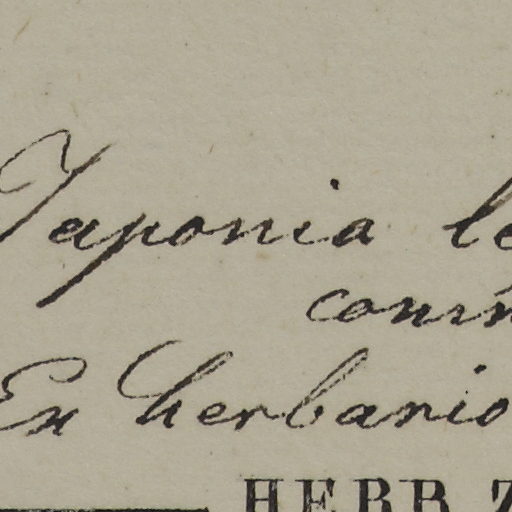 Japonia le
comm
Ex herbario
HERB. Z